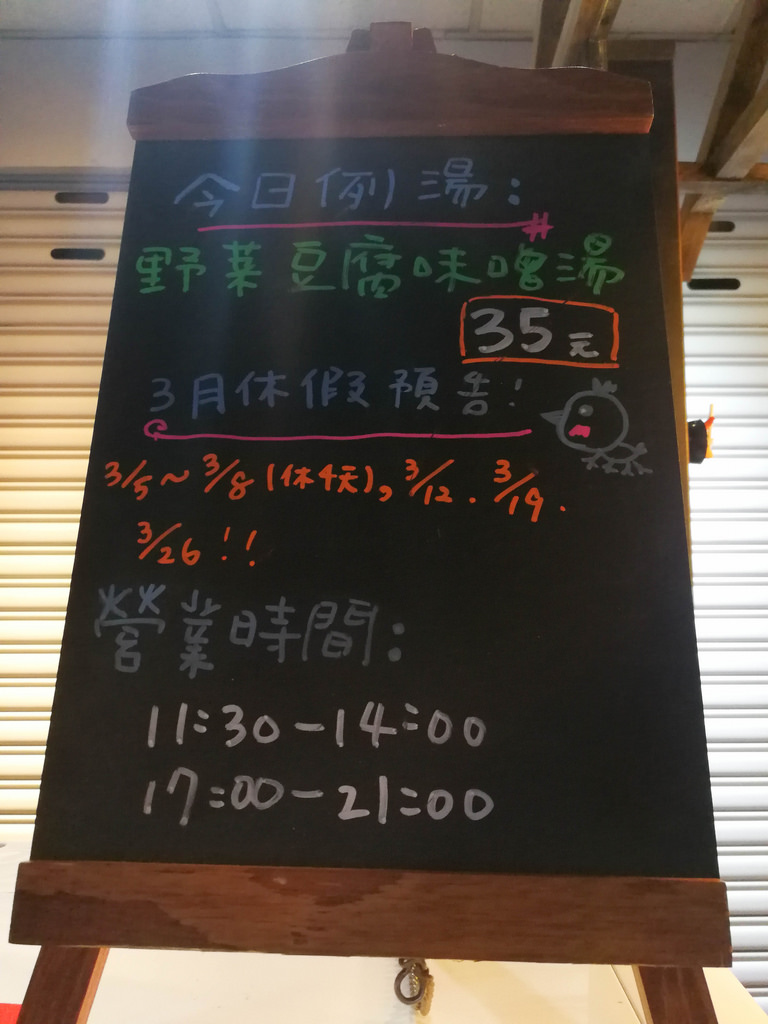 今日例湯:
野菜豆腐味噌湯
35元
3月休假預告!
3/5~3/8(休4天),3/12.3/19.
3/26!!
營業時間:
11:30-14:00
17:00-21:00